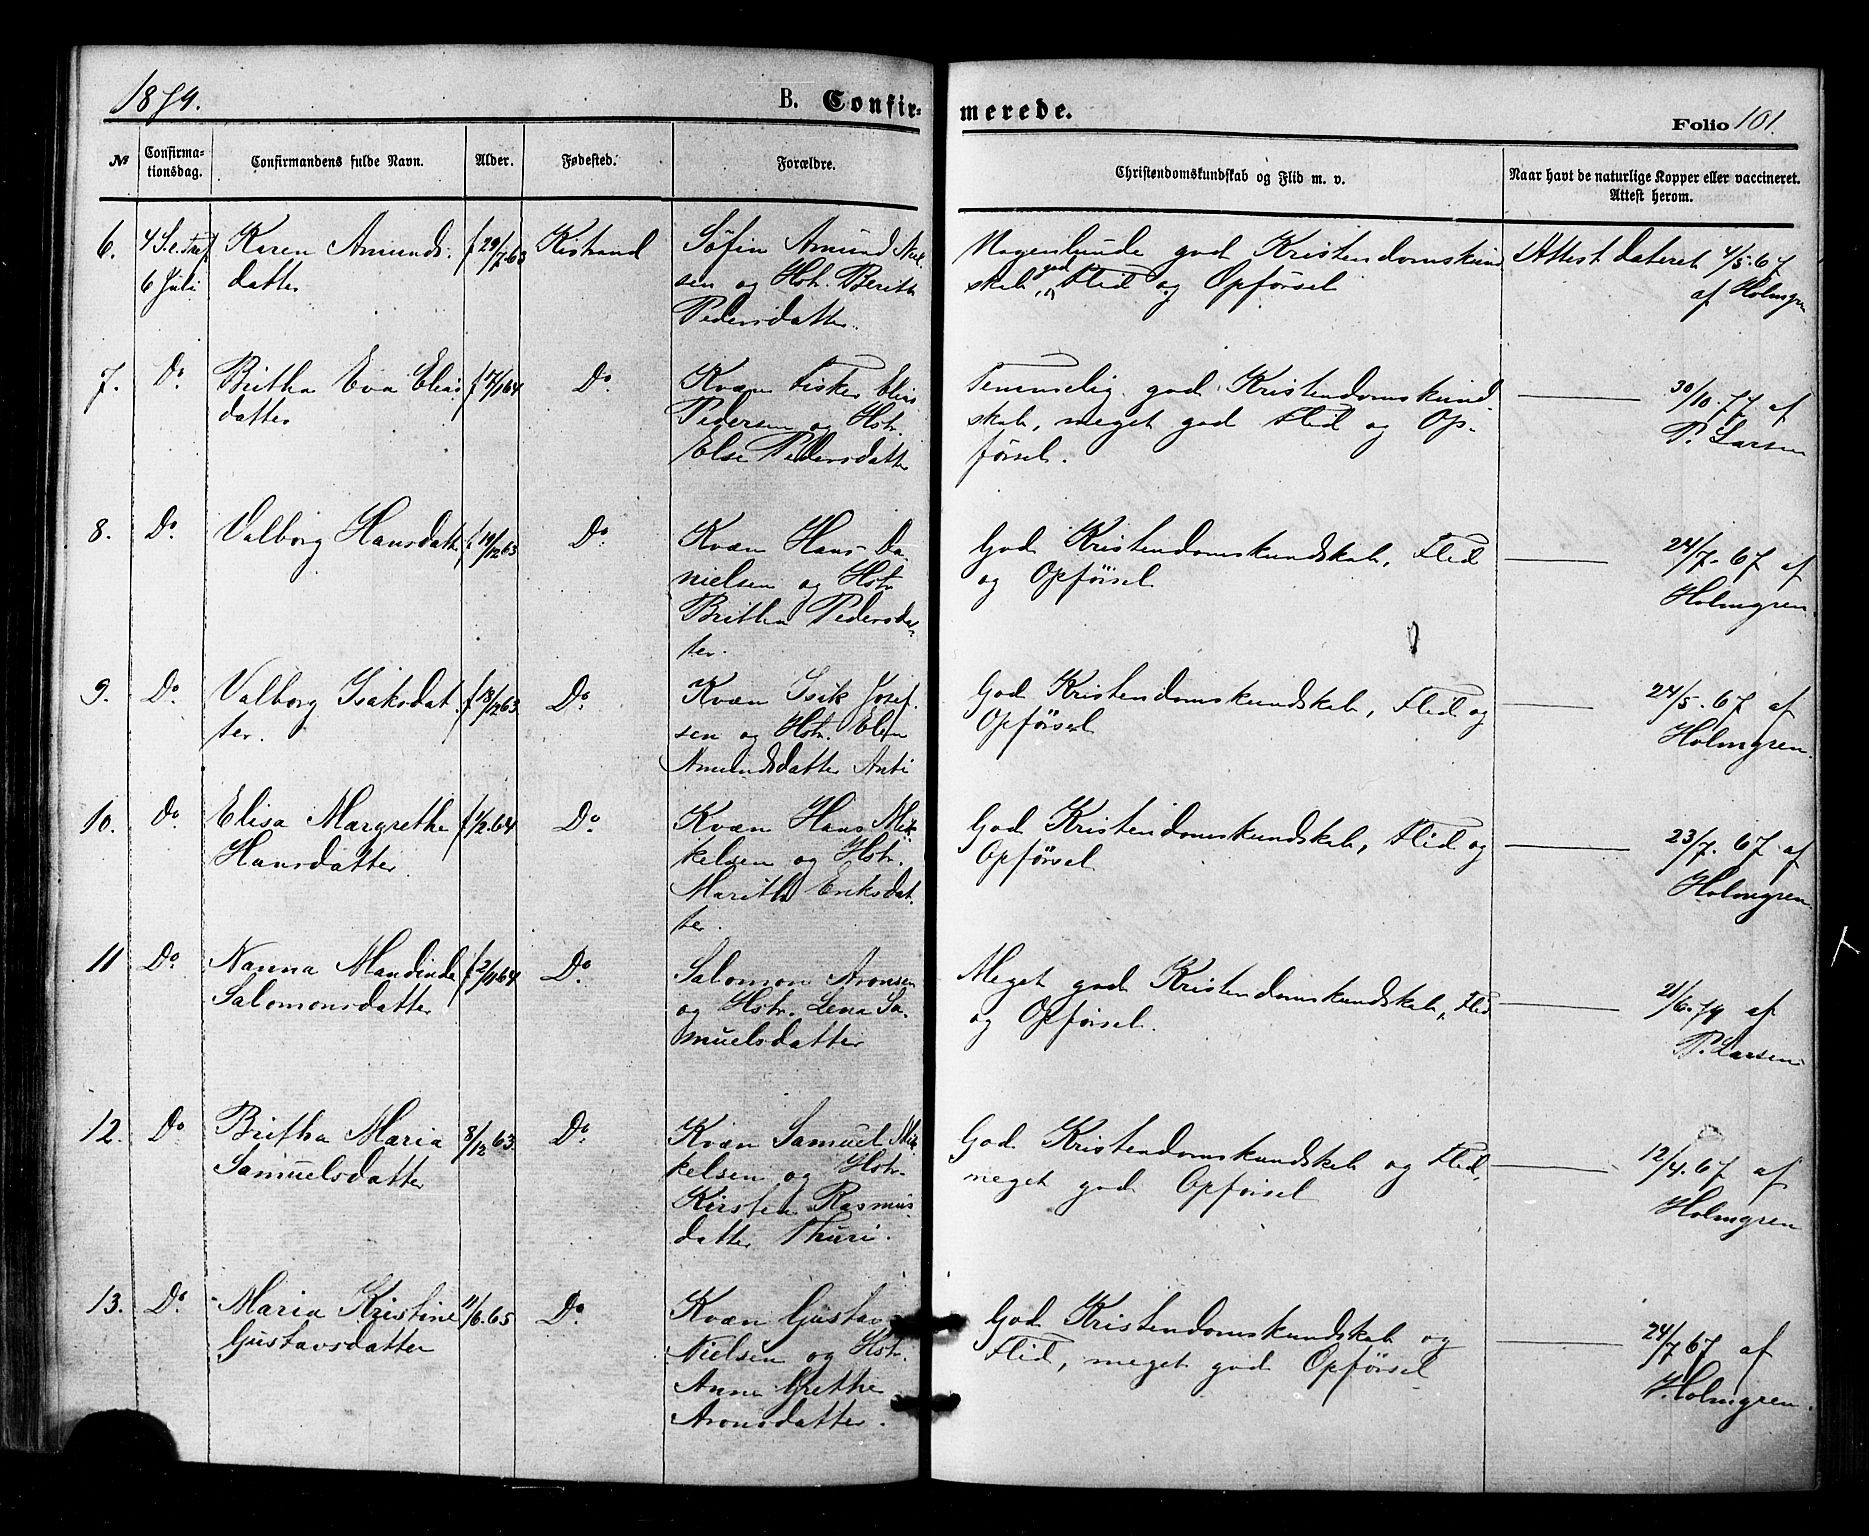 1879.
B. Confir-
merede.
Folio 101.
№
Confirma-
tionsdag.
Confirmandens fulde Navn.
Alder.
Fødested.
Forældre.
Christendomskundskab og Flid m. v.
Naar havt de naturlige Kopper eller vaccineret.
Attest herom.
6.
4 S. e. Tref
6 Juli
Karen Amunds-
datter
f 29/7 63
Kistrand
Søfin Amund Niel
sen og Hstr. Berith
Pedersdatter.
Nogenlunde god Kristendomskund
skab, god Flid og Opførsel
Attest dateret 4/5. 67
af Holmgren
7.
Do
Britha Eva Elias
datter
f 7/1 64
Do
Kvæn Fisker Elias
Pedersen og Hstr.
Else Pedersdatter
Temmelig god Kristendomskund-
skab, meget god Flid og Op-
førsel.
30/10. 77 af
P. Larsen
8.
Do
Valborg Hansdatter
f. 14/12 63
Do
Kvæn Hans Da
nielsen og Hstr
Britha Pedersdat-
ter.
God Kristendomskundskab, Flid
og Opførsel
24/7. 67 af
Holmgren
9.
Do
Valborg Isaksdat
ter.
f 18/12 63
Do
Kvæn Isik Josef-
sen og Hstr. Elen
Amundsdatter Anti
God Kristendomskundskab, Flid og
Opførsel
24/5. 67 af
Holmgren.
10.
Do
Elisa Margrethe
Hansdatter
f 1/2. 64
Do
Kvæn Hans Mik
kelsen og Hstr.
Marith Eriksdat
ter.
God Kristendomskundskab, Flid og
Opførsel
23/7. 67 af
Holmgren.
11
Do
Nanna Mandinda
Salomonsdatter
f 2/11 64
Do
Salomon Aronsen
og Hstr. Lena Sa-
muelsdatter
Meget god Kristendomskundskab, Flid
og Opførsel.
21/6. 79 af
P. Larsen
12.
Do
Britha Maria
Samuelsdatter
8/12 63.
Do
Kvæn Samuel Mik
kelsen og Hstr.
Kirsten Rasmus-
datter Thuri.
God Kristendomskundskab og Flid,
meget god Opførsel
12/4. 67 af
Holmgren
13.
Do
Maria Kristine
Gustavsdatter
11/6. 65
Do
Kvæn Gustav
Nielsen og Hstr.
Anne Grethe
Aronsdatter.
God Kristendomskundskab og
Flid, meget god Opførsel
24/7 67 af
Holmgren.